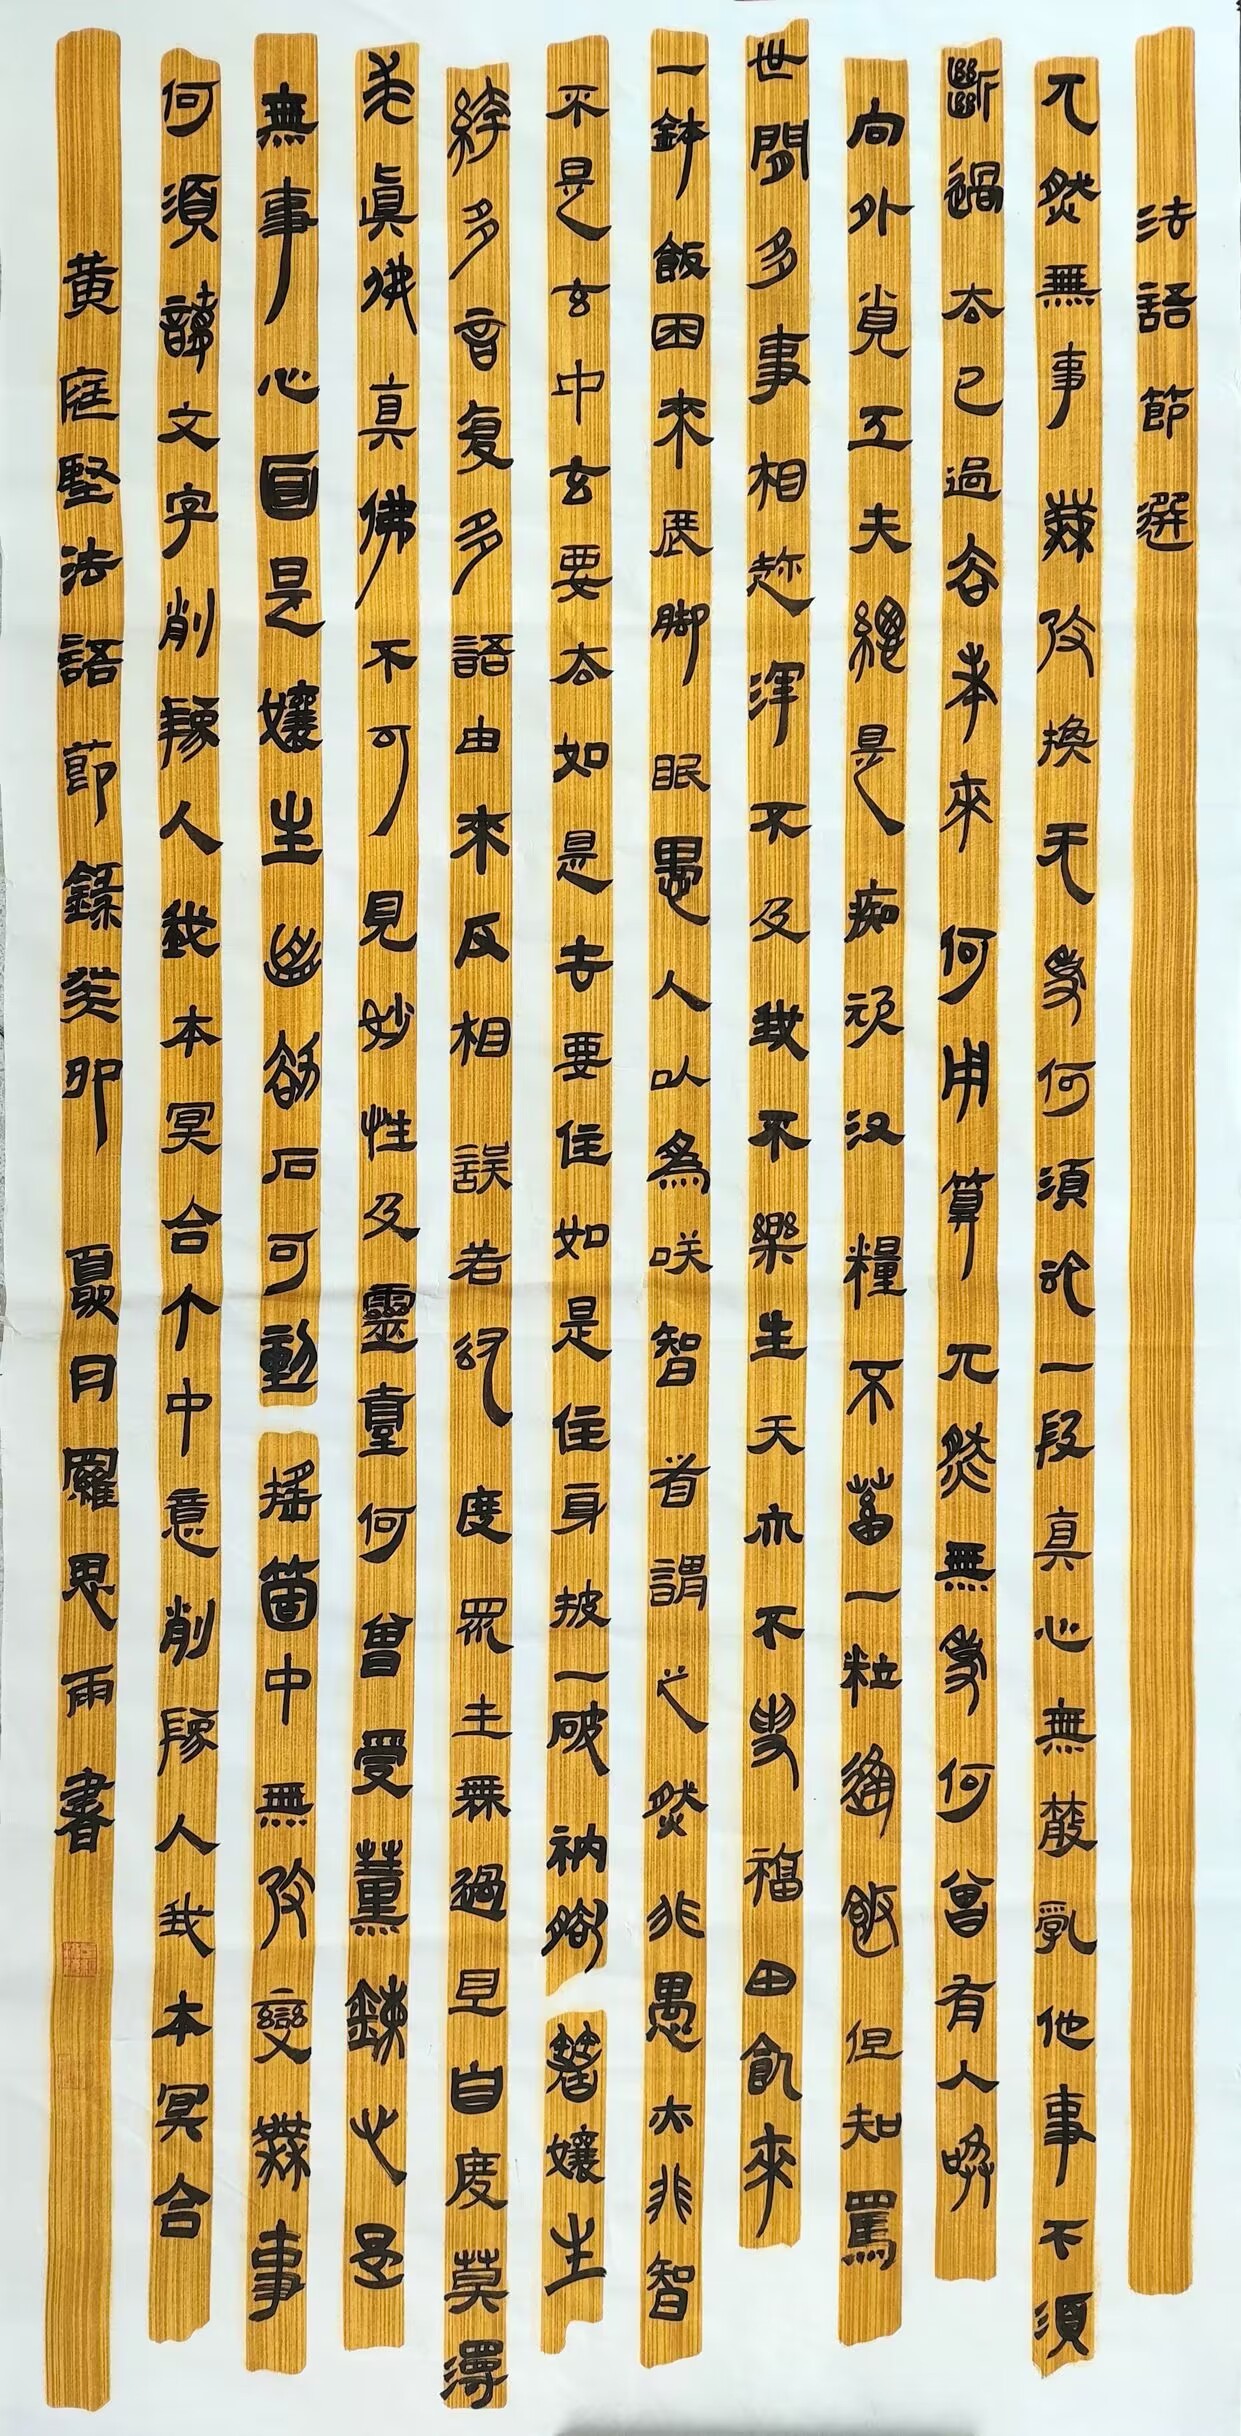 法語節選
兀然無事無改換无事何須論一段真心無散乱他事不須
斷過去已過去未來何用算兀然無事何曾有人喚
向外覓工夫總是痴頑汉糧不蓄一粒逢飯但知罵
世間多事相趂渾不及我不樂生天亦不愛福田飢來
一鉢飯困來展脚眠愚人以為咲智者謂之然非愚亦非智
不是玄中玄要去如是去要住如是住身披一破衲脚着孃生
袴多言复多語由來反相誤若欲度眾生無過且自度莫漫
求真佛真佛不可見妙性及靈臺何曾受薰鍊心是
無事心面是孃生面劫石可動搖箇中無改變無事
何須讀文字削除人我本冥合个中意削除人我本冥合
黄庭堅法語節錄癸卯夏月羅思雨書